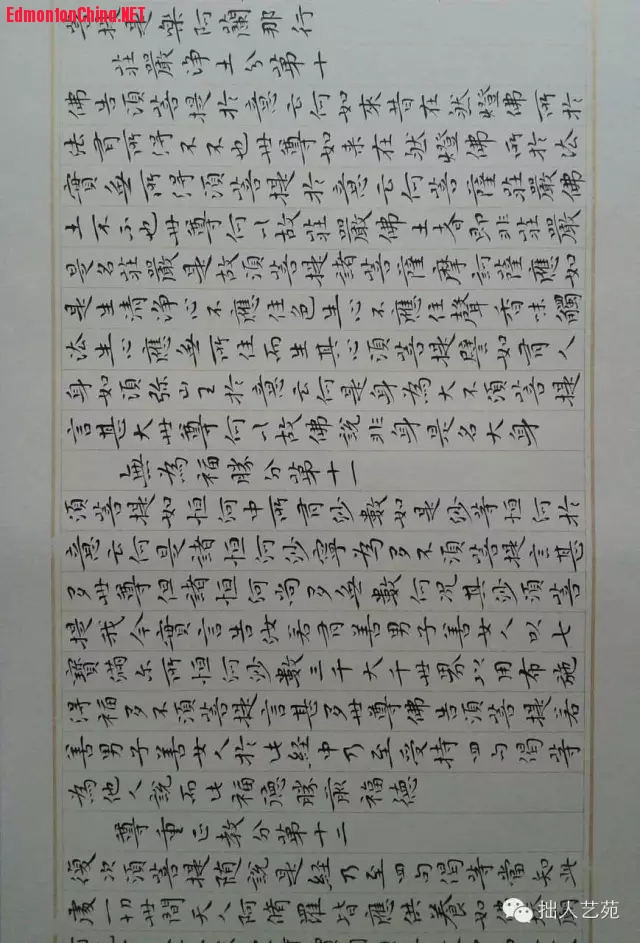 EdmontonChina.NET
菩提是樂阿蘭那行
莊嚴淨土分第十
佛告須菩提於意云何如來昔在然燈佛所於
法有所得不不也世尊如来在然燈佛所於法
實無所得須菩提於意云何菩薩莊嚴佛
土不不也世尊何以故莊嚴佛土者即非莊嚴
是名莊嚴是故須菩提諸菩薩摩訶薩應如
是生清淨心不應住色生心不應住聲香味觸
法生心應無所住而生其心須菩提譬如有人
身如須弥山王於意云何是身為大不須菩提
言甚大世尊何以故佛說非身是名大身
無為福勝分第十一
須菩提如恒河中所有沙數如是沙等恒河於
意云何是諸恒河沙寧為多不須菩提言甚
多世尊但諸恒河尚多無數何況其沙須菩
提我今實言告汝若有善男子善女人以七
寶滿尓所恒河沙數三千大千世界以用布施
得福多不須菩提言甚多世尊佛告須菩提若
善男子善女人於此経中乃至受持四句偈等
為他人說而此福德勝前福德
尊重正教分第十二
復次須菩提隨說是経乃至四句偈等當知此
處一切世間天人阿脩羅皆應供養如佛
拙人艺苑